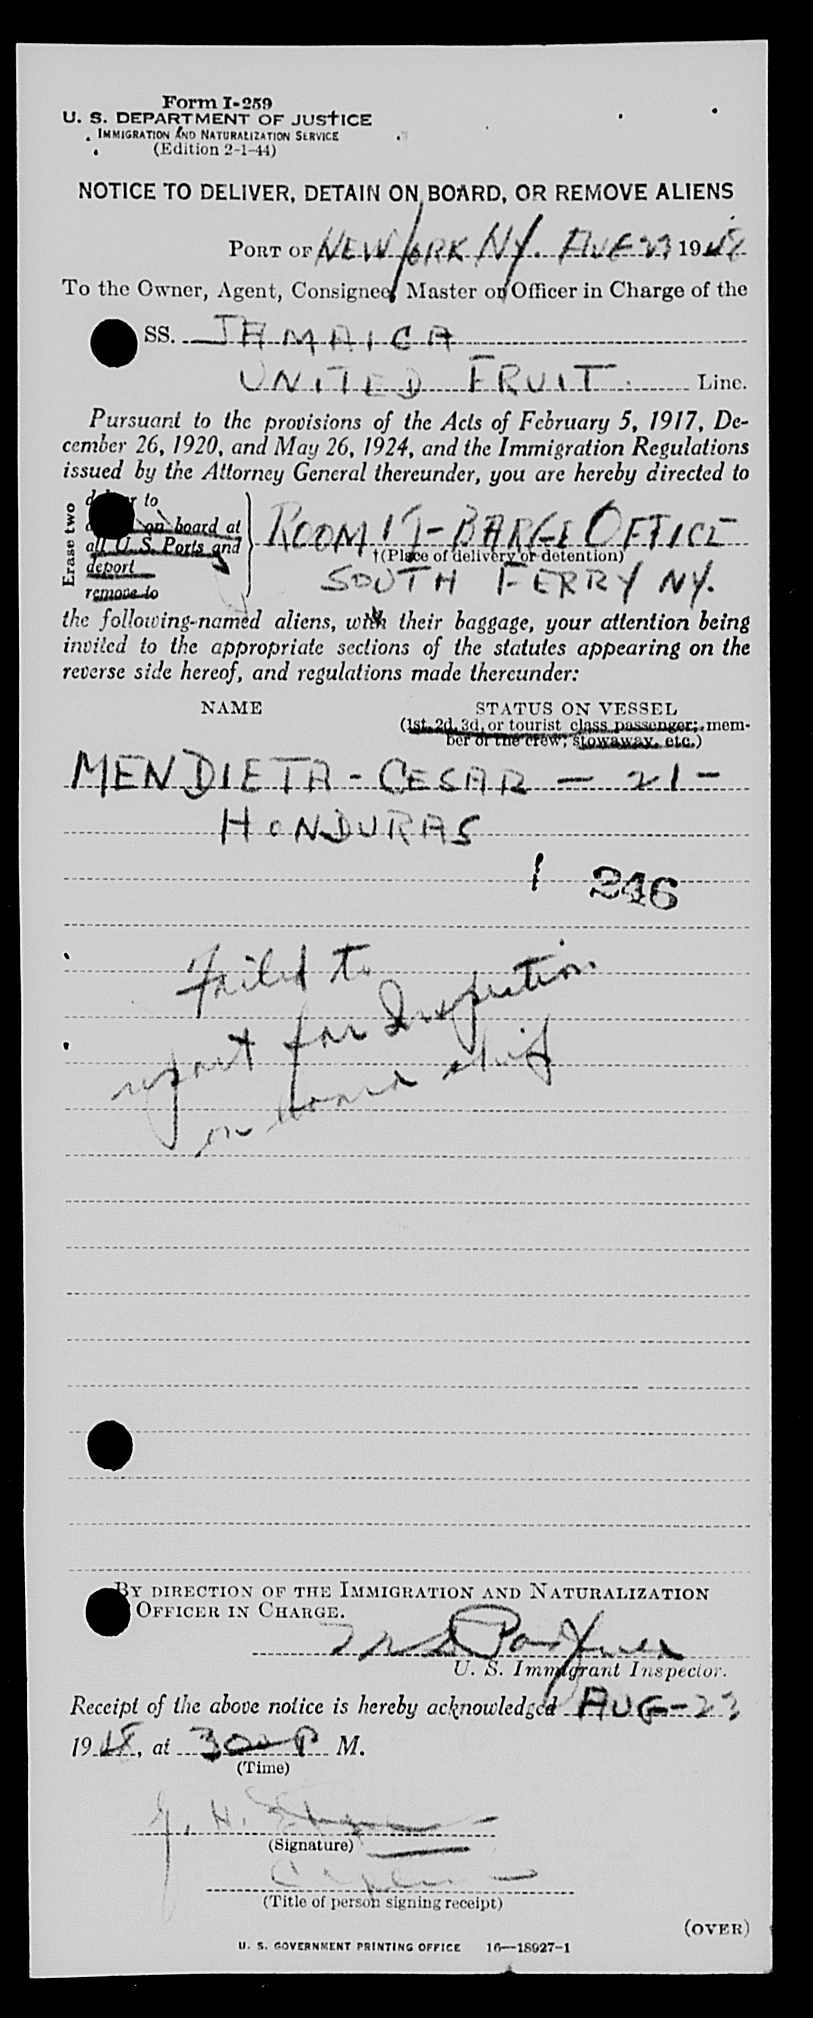 Form I-259
U. S. DEPARTMENT OF JUSTICE
IMMIGRATION AND NATURALIZATION SERVICE
(Edition 2-1-44)
NOTICE TO DELIVER, DETAIN ON BOARD, OR REMOVE ALIENS
PORT OF NEW YORK NY. AUG 23 1948
To the Owner, Agent, Consignee, Master or Officer in Charge of the
SS. JAMAICA
UNITED FRUIT. Line.
Pursuant to the provisions of the Acts of February 5, 1917, De-
cember 26, 1920, and May 26, 1924, and the Immigration Regulations
issued by the Attorney General thereunder, you are hereby directed to
Erase two
to
on board at
all U. S. Ports and
deport
remove to
ROOM 19 - BARGE OFFICE
†(Place of delivery or detention)
SOUTH FERRY NY.
the following-named aliens, with their baggage, your attention being
invited to the appropriate sections of the statutes appearing on the
reverse side hereof, and regulations made thereunder:
NAME STATUS ON VESSEL
(1st, 2d, 3d, or tourist class passenger; mem-
ber of the crew; stowaway, etc.)
MENDIETA - CESAR — 21 -
HONDURAS
1 246
Failed to
report for Inspection
on board ship
BY DIRECTION OF THE IMMIGRATION AND NATURALIZATION
OFFICER IN CHARGE.
U. S. Immigrant Inspector.
Receipt of the above notice is hereby acknowledged AUG - 23
1948, at 300 P M.
(Time)
J. H.
(Signature)
(Title of person signing receipt)
(OVER)
U. S. GOVERNMENT PRINTING OFFICE 16—18927-1